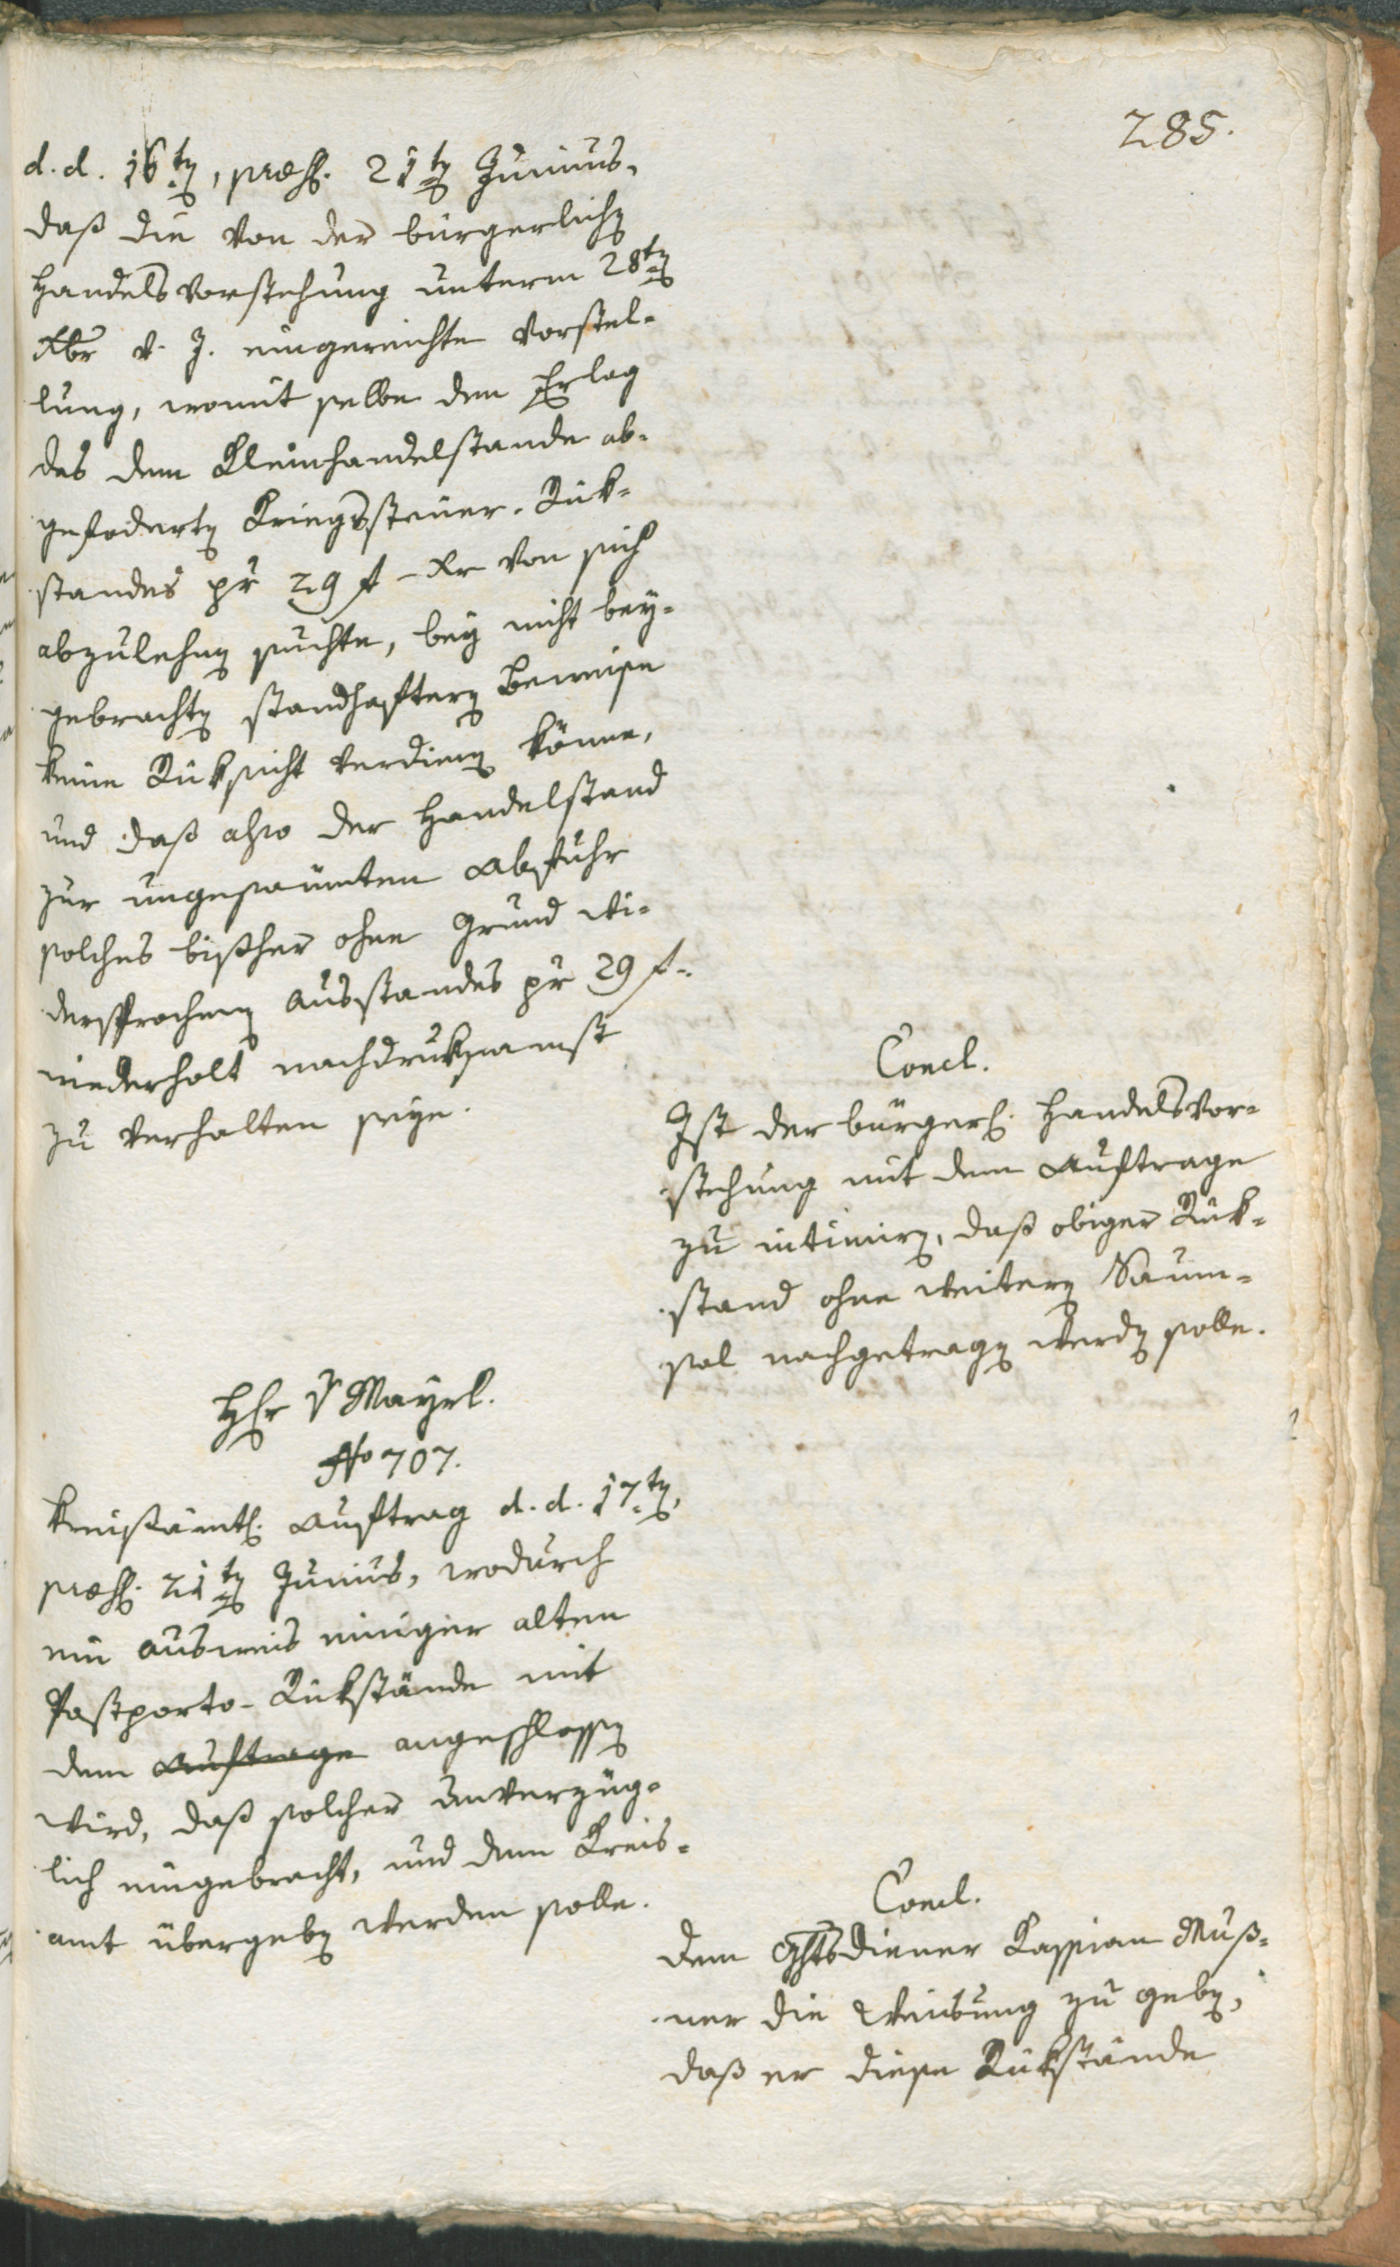 285.
d. d. 16ten, praes. 21ten Junius,
daß die von der bürgerlichen
Handelsvorstehung unterm 28ten
Xbr v. J. eingereichte Vorstel-
lung, womit selbe den Erlag
des dem Kleinhandelstande ab-
gefoderten Kriegssteuer-Rük-
standes pr 29 f – Xr von sich
abzulehnen suchte, bey nicht bey-
gebrachten standhafteren Beweise
keine Rüksicht verdienen könne,
und daß also der Handelstand
zur ungesäumten Abfuhr
solches bißher ohne Grund wi-
dersprochenen Ausstandes pr 29 f.
wiederholt nachdruksamst
zu verhalten seye.
Concl.
Ist der bürgerl. Handelsvor-
stehung mit dem Auftrage
zu intimiren, daß obiger Rük-
stand ohne weiteren Saum-
sal nachgetragen werden solle.
Hr v Mayrl.
No 707.
Kreisämtl. Auftrag d. d. 17ten,
praes. 21ten Junius, wodurch
ein Ausweis einiger alten
Postporto-Rükstände mit
dem Auftrage angeschlossen
wird, daß solcher unverzüg-
lich eingebracht, und dem Kreis-
amt übergeben werden solle.
Concl.
Dem Ghtsdiener Kassian Muß-
ner die Weisung zu geben,
daß er diese Rükstände